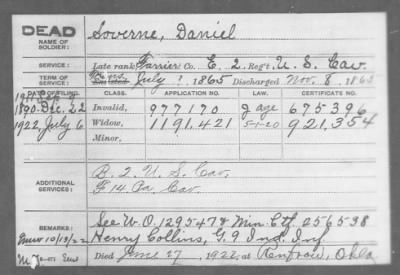 DEAD
NAME OF SOLDIER:
Soverns, Daniel
SERVICE:
Late rank Farrier Co. E. 2. Reg't U. S. Cav
TERM OF SERVICE:
July 1 1865 Discharged Nov. 8 1865
DATE OF FILING.
CLASS.
APPLICATION NO.
LAW.
CERTIFICATE NO.
1890 Dec. 22
Invalid,
977170
g age
675396
1922, July 6
Widow,
1191.421
5-1-20
921,354
Minor,
ADDITIONAL SERVICES:
B. 2 U. S. Cav,
F 14 Pa. Cav.
REMARKS:
See W. O. 1295478 Min Ctf. 256538
10/13/22
Henry Collins, G. 9 Ind. Inf
Died June 27, 1922 at Renfrow, Okla